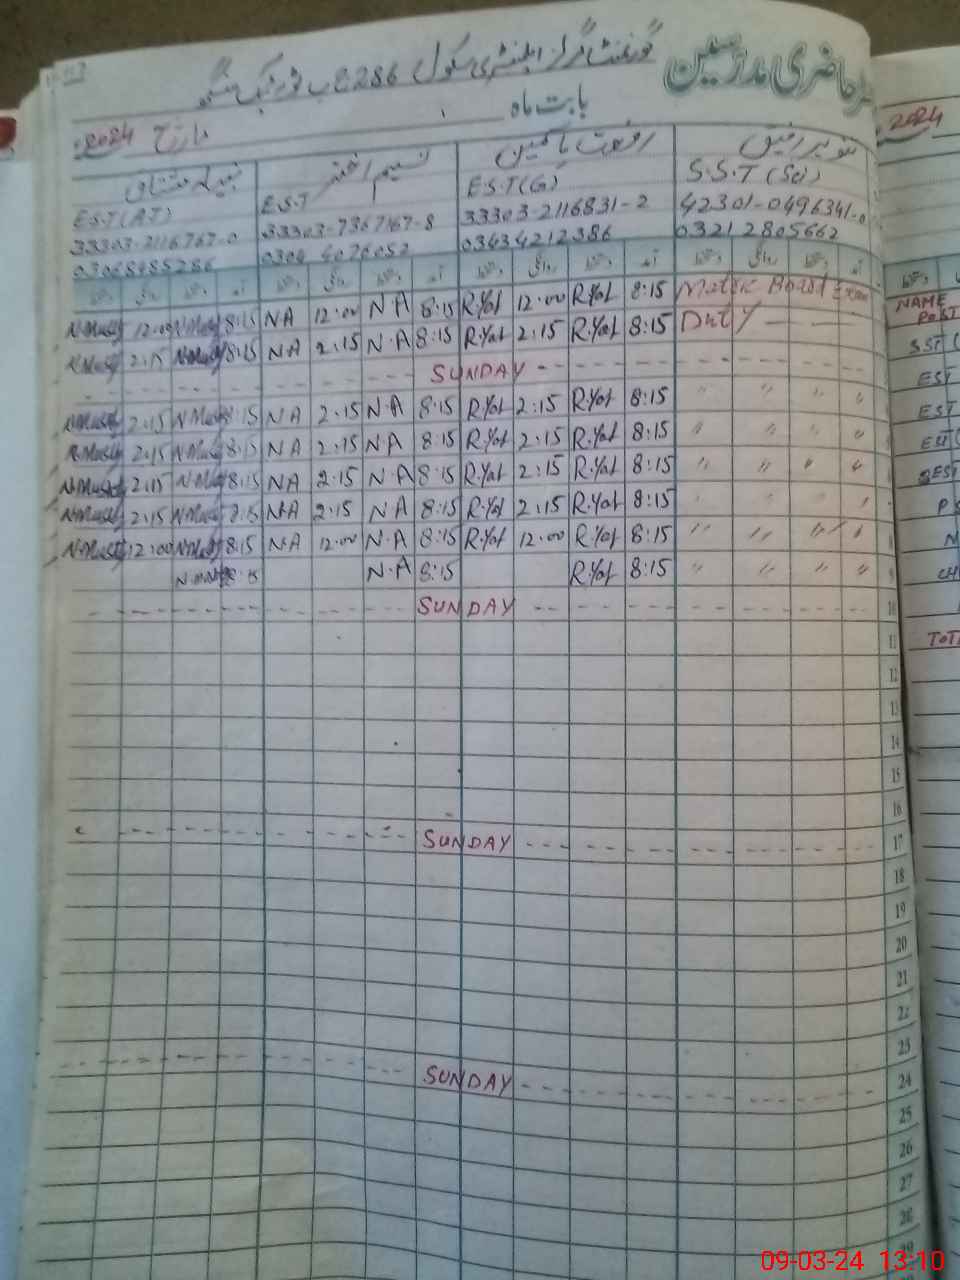 حاضری مدرسین
گورنمنٹ گرلز ایلیمنٹری سکول 286 ب ٹوبہ ٹیک سنگھ
بابت ماہ
مارچ 2024
تنویر رفیق رفعت یاسمین نسیم اختر نبیلہ مشتاق
S.S.T (Sci) E.S.T (G) E.S.T E.S.T (A.T)
42301-0496341-0 33303-2116831-2 33303-7367167-8 33303-2116767-0
03212805662 03434212386 0304 4076052 03068485286
آمد دستخط روانگی دستخط آمد دستخط روانگی دستخط آمد دستخط روانگی دستخط آمد دستخط روانگی دستخط
12.00 8:15 NA 12.00 N A 8:15 R.Yat 12.00 R.Yat 8:15 Matric Board Exam
2.15 8:15 N-A 2.15 N.A 8:15 R.Yat 2:15 R.Yat 8:15 Duty
SUNDAY
2.15 8:15 NA 2.15 N.A 8:15 R.Yat 2:15 R.Yat 8:15 " " " "
2.15 8:15 NA 2:15 N A 8:15 R.Yat 2:15 R.Yat 8:15 " " " "
2:15 8:15 NA 2:15 N-A 8:15 R.Yat 2:15 R.Yat 8:15 " " " "
2:15 8:15 N.A 2:15 N A 8:15 R.Yat 2:15 R.Yat 8:15 " " " "
12:00 8:15 N-A 12.00 N.A 8:15 R.Yat 12.00 R.Yat 8:15 " " " " 8
8:15 N.A 8:15 R.Yat 8:15 " " " " 9
SUNDAY 10
11
12
13
14
15
16
SUNDAY 17
18
19
20
21
22
23
SUNDAY 24
25
26
27
28
29
2024
دستخط
NAME
POST
SST (
EST
EST
P S
CH
TOTA
09-03-24 13:10